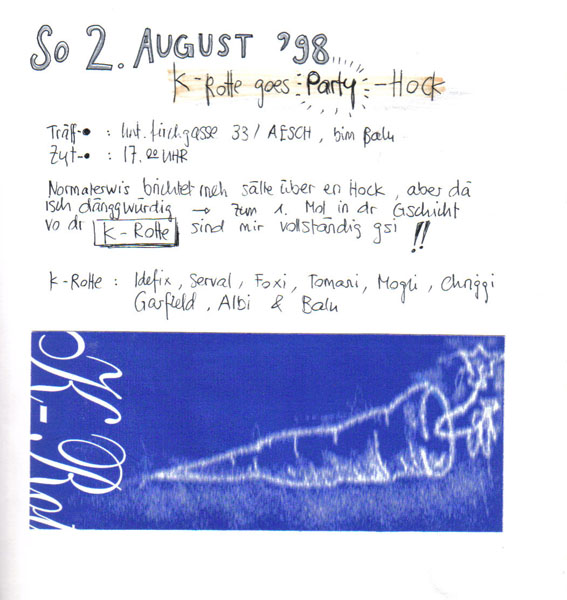 So 2. AUGUST '98
K-Rotte goes Party-Hock
Träff-• : Unt. Kirchgasse 33 / AESCH, bim Balu
Zyt-• : 17.00 UHR
Normalerwis brichtet mch sälte über en Hock, aber dä
isch dänggwürdig → zum 1. Mol in dr Gschicht
vo dr K-Rotte sind mir vollständig gsi !!
K-Rotte : Idefix, Serval, Foxi, Tomani, Mogli, Chnggi
Garfield, Albi & Balu
K-Rot